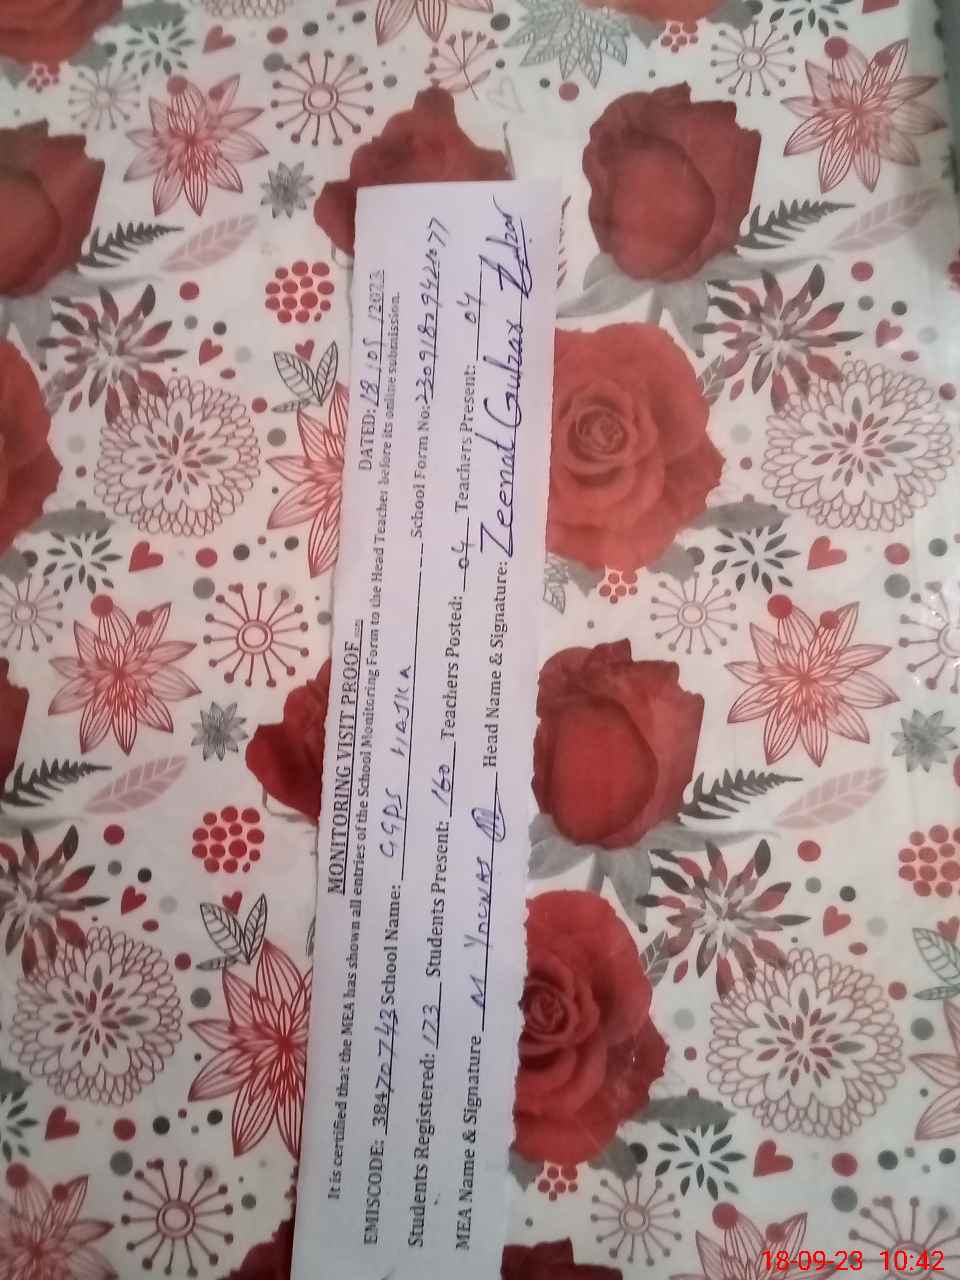 MONITORING VISIT PROOF
DATED: 18 / 09 / 2023
It is certified that the MEA has shown all entries of the School Monitoring Form to the Head Teacher before its online submission.
EMISCODE: 38470743 School Name: GGPS HAJKA School Form No:
Students Registered: 173 Students Present: 160 Teachers Posted: 04 Teachers Present: 04
MEA Name & Signature M Younas Head Name & Signature: Zeenat Gulzar
18-09-23 10:42